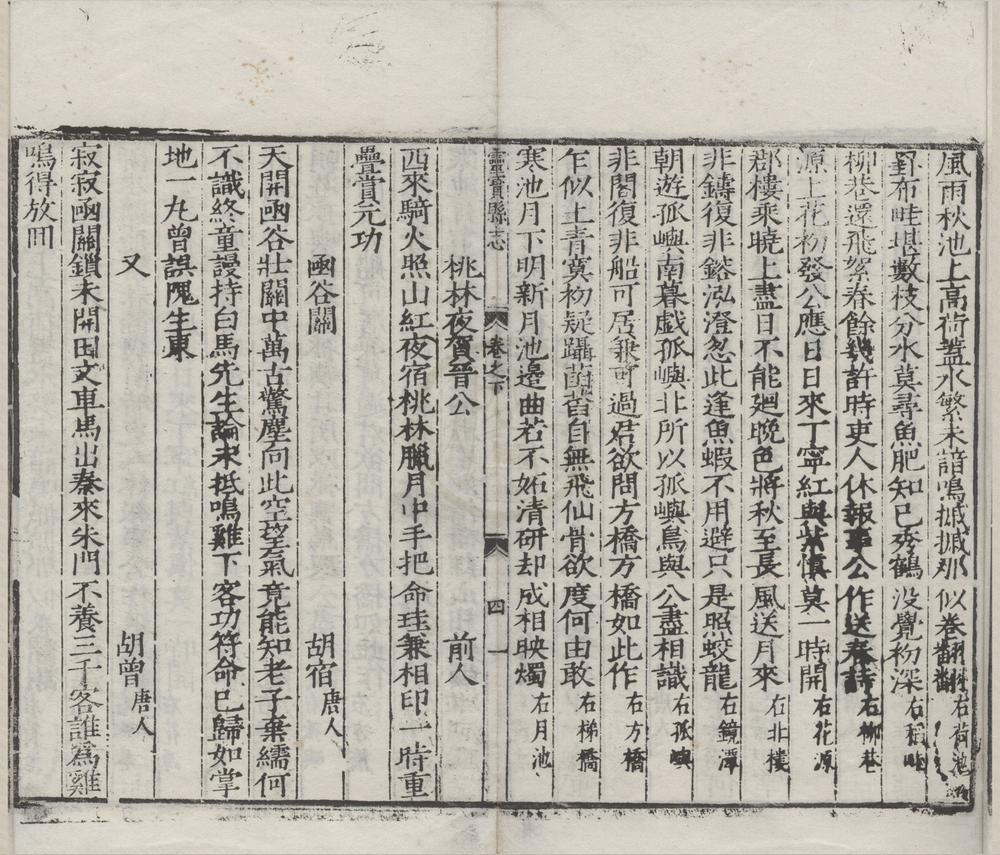 風雨秋池上高荷蓋水繁未諳鳴摵摵那似卷翻翻右荷池
罫布畦堪數枝分水莫尋魚肥知已秀鶴沒覺初深右稻畦
柳巷還飛絮春餘幾許時吏人休報事公作送春詩右柳巷
源上花初發公應日日來丁寧紅與紫慎莫一時開右花源
郡樓乘曉上盡日不能廻晚色將秋至長風送月來右北樓
非鑄復非鎔泓澄忽此逢魚蝦不用避只是照蛟龍右鏡潭
朝遊孤嶼南暮戲孤嶼北所以孤嶼鳥與公盡相識右孤嶼
非閣復非船可居兼可過君欲問方橋方橋如此作右方橋
乍似上青冥初疑躡菡萏自無飛仙骨欲度何由敢右梯橋
寒池月下明新月池邊曲若不妬清研却成相映燭右月池
靈寳縣志 卷之下 四一
桃林夜賀晉公 前人
西來騎火照山紅夜宿桃林臘月中手把命珪兼相印一時重
疊賞元功
函谷關 胡宿唐人
天開函谷壯關中萬古驚塵向此空望氣竟能知老子棄繻何
不識終童謾持白馬先生論未抵鳴雞下客功符命已歸如掌
地一九曾誤隗生東
又 胡曾唐人
寂寂函關鎖未開田文車馬出秦來朱門不養三千客誰爲雞
鳴得放回